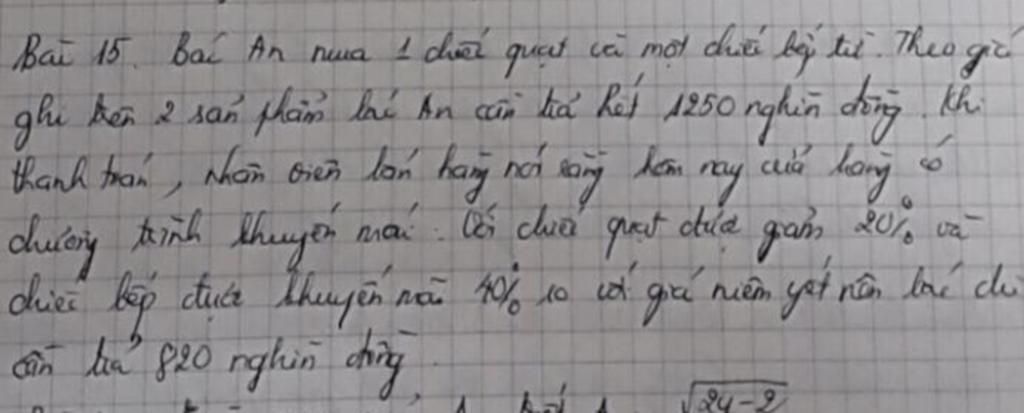 Bài 15. Bác An mua 1 chiếc quạt và một chiếc bếp từ. Theo giá
ghi trên 2 sản phẩm bác An cần trả hết 1250 nghìn đồng. Khi
thanh toán, nhân viên bán hàng nói rằng hôm nay cửa hàng có
chương trình khuyến mãi. Với chiếc quạt được giảm 20% và
chiếc bếp được khuyến mãi 40% so với giá niêm yết nên bác chỉ
cần trả 820 nghìn đồng.
√24-2